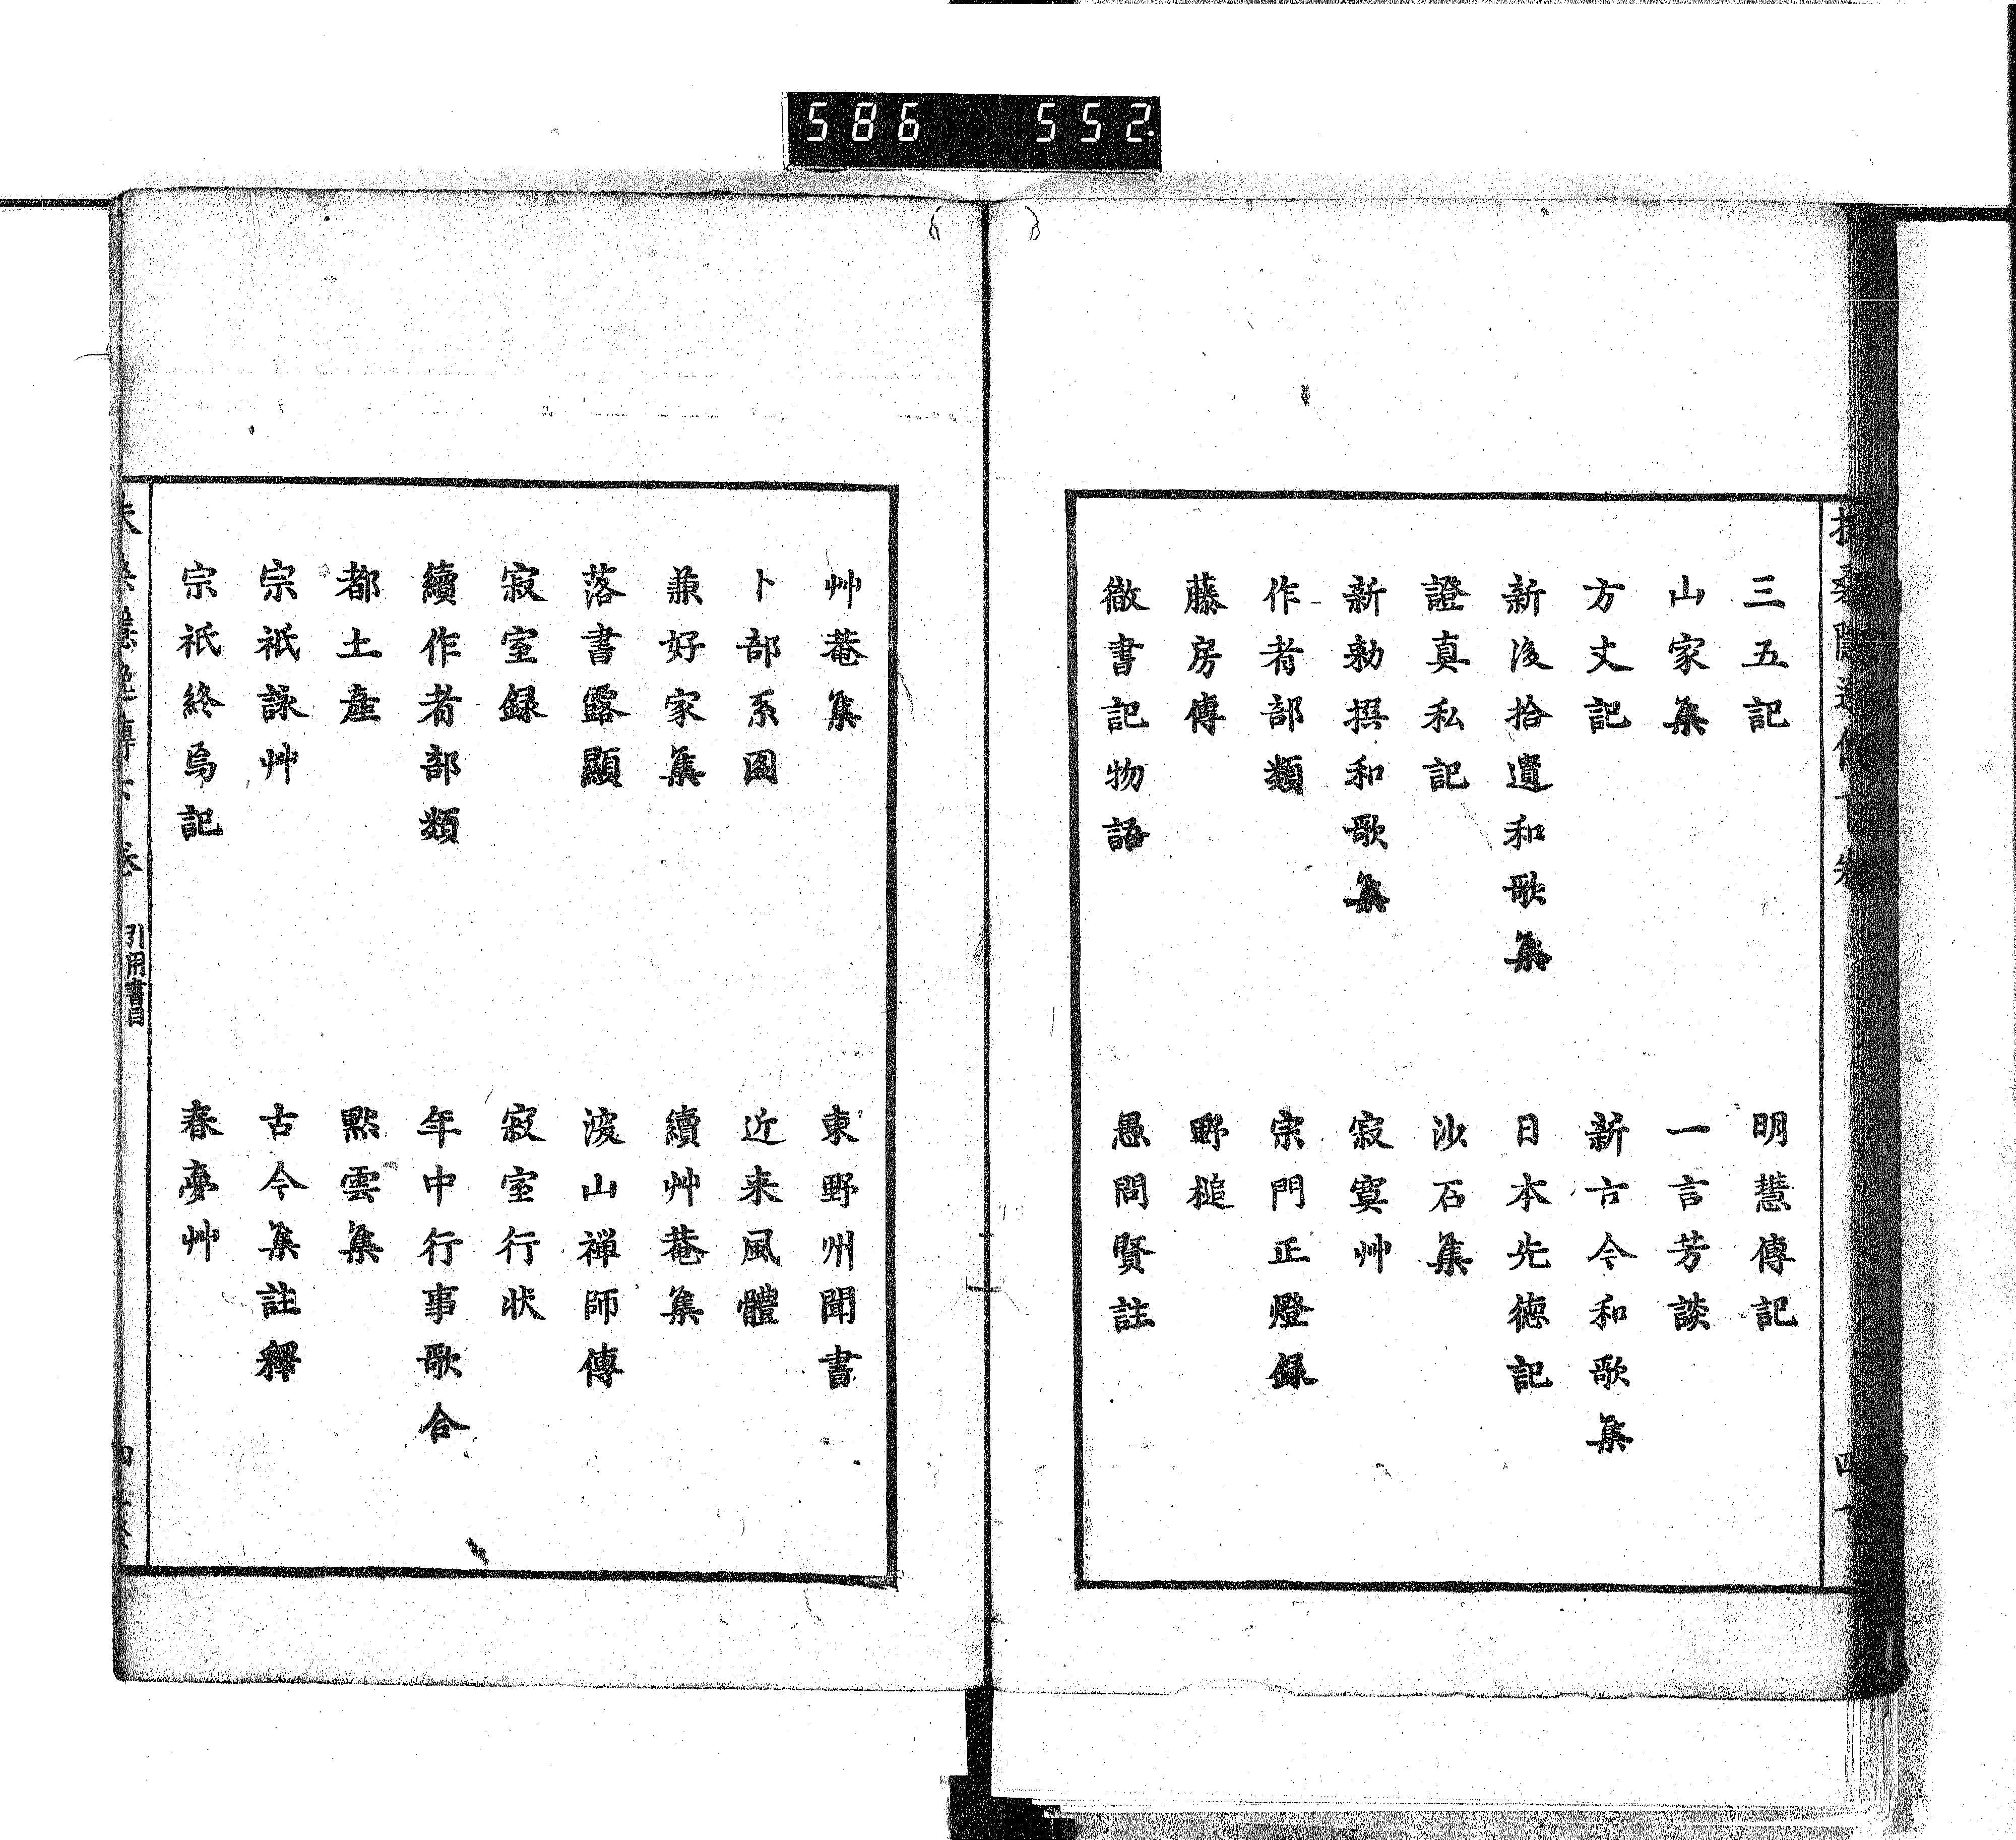 586 552
三五記
明慧傳記
山家集
一言芳談
方丈記
新古今和歌集
新後拾遺和歌集
日本先徳記
證真私記
沙石集
新勅撰和歌集
寂寞艸
作者部類
宗門正燈録
藤房傳
野槌
徹書記物語
愚問賢註
艸菴集
東野州聞書
卜部系圖
近来風體
兼好家集
續艸菴集
落書露顯
浚山禅師傳
寂室録
寂室行状
續作者部類
年中行事歌合
都土産
㸃雲集
宗祇詠艸
古今集註釋
宗祇終焉記
春夢艸
引用書目